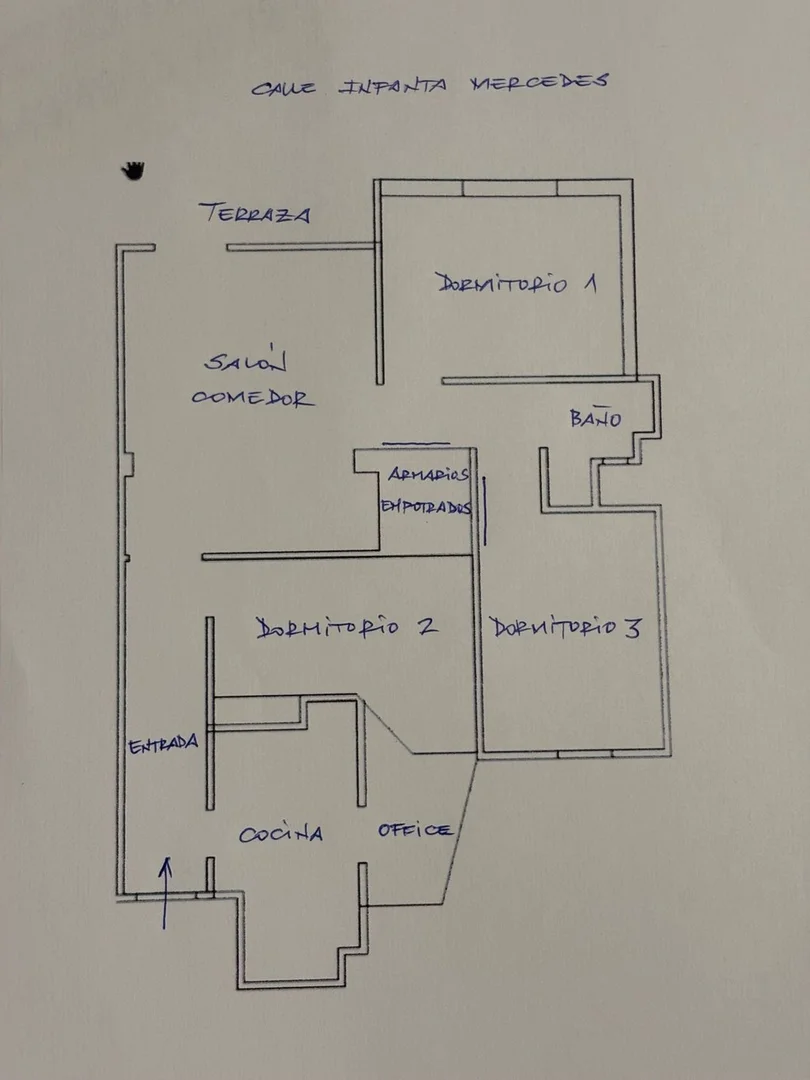 CALLE INFANTA MERCEDES
TERRAZA
DORMITORIO 1
SALÓN
COMEDOR
BAÑO
ARMARIOS
EMPOTRADOS
DORMITORIO 2
DORMITORIO 3
ENTRADA
COCINA
OFFICE